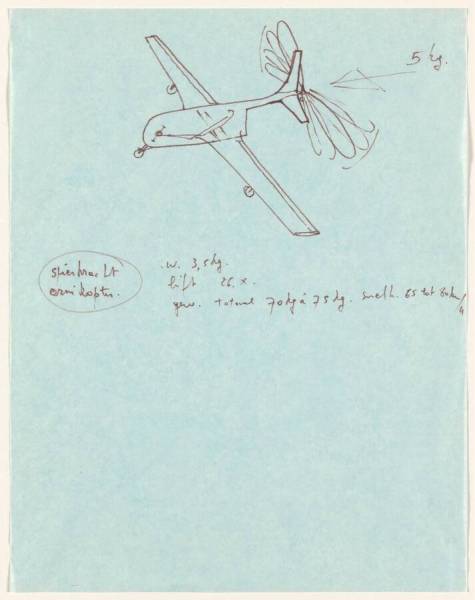 5 kg.
spierkracht
ornikopter.
w. 3,5 kg.
lift 26 x.
gew. totaal 70 kg à 75 kg. snelh. 65 tot 80 km/u